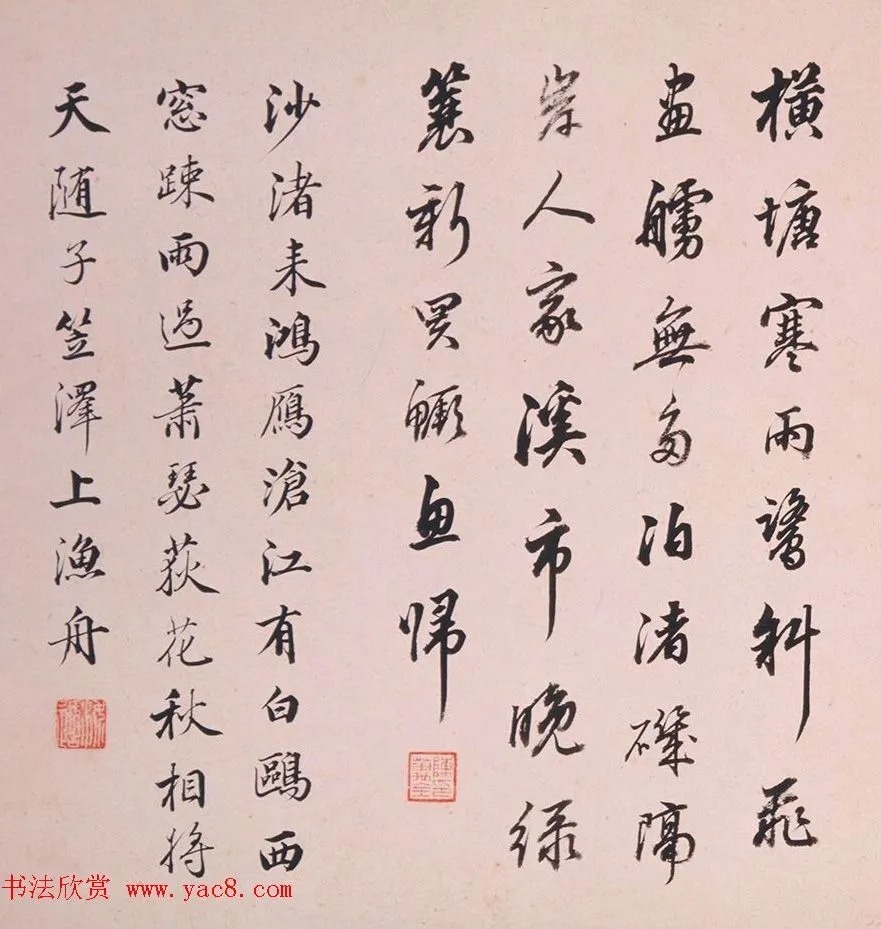 橫塘寒雨鷺斜飛
畫艣無多泊渚磯隔
岸人家溪市晚綠
蓑新買鱖魚歸
沙渚来鴻雁滄江有白鷗西
窓踈雨過蕭瑟荻花秋相将
天随子笠澤上漁舟
书法欣赏 www.yac8.com